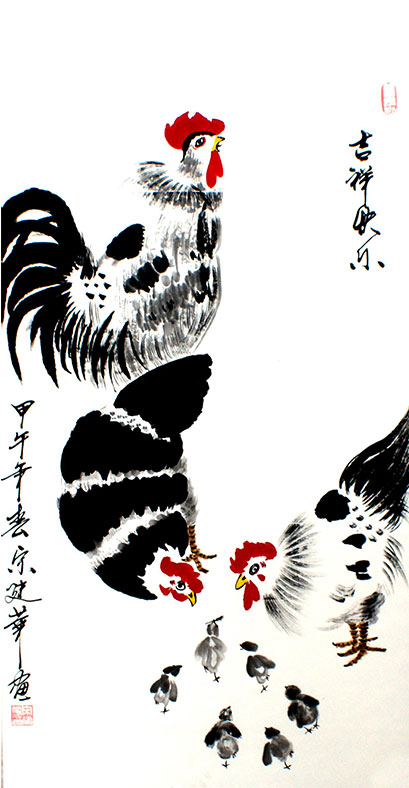 吉祥快乐
甲午年春宗建华画